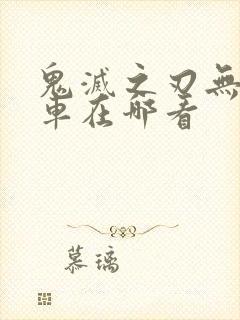 鬼滅之刃無
車在哪看
慕璃